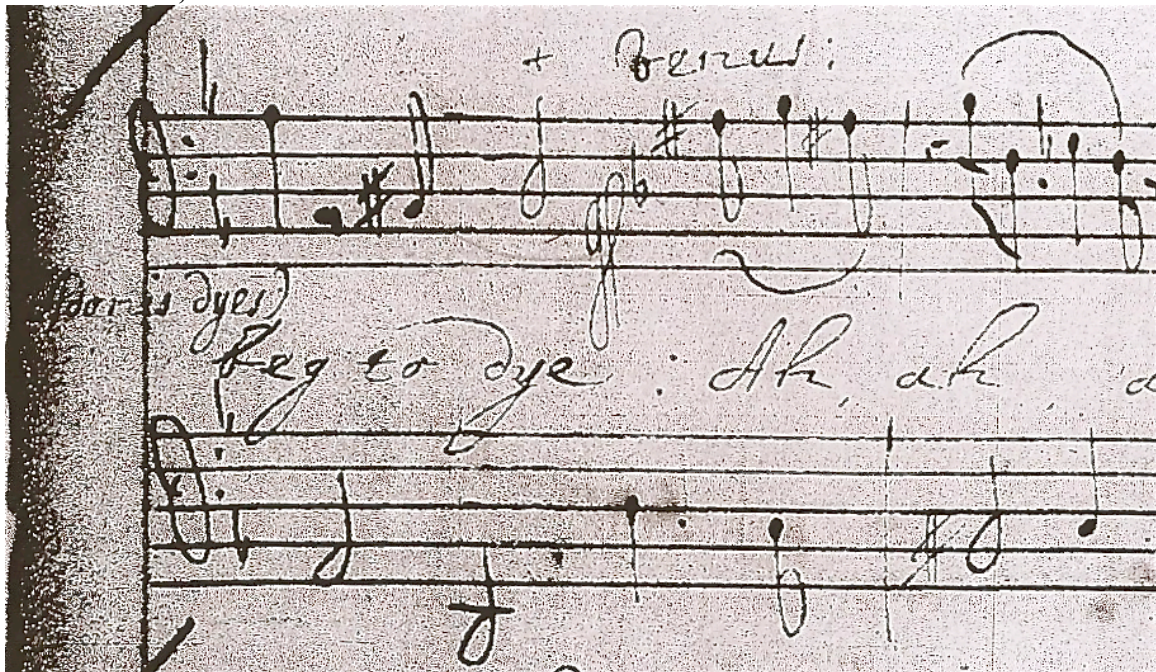 + Venus:
Adonis dyes)
beg to dye : Ah, ah